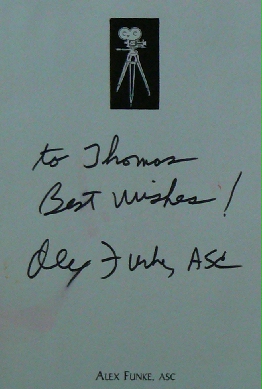 to Thomas
Best Wishes!
Alex Funke, ASC
ALEX FUNKE, ASC